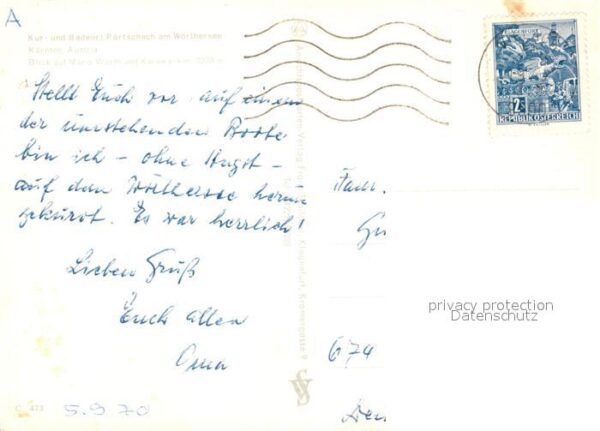 A
Kur- und Badeort Pörtschach am Wörthersee
Kärnten, Austria
Blick auf Maria Wörth und Karawanken
Stellt Euch vor, auf einem
der umstehenden Boote
bin ich - ohne Angst -
auf dem Wörthersee herum
gekurvt. Es war herrlich!
Lieben Gruß
Euch allen
Oma
C 473
5.9.70
Klagenfurt,
KLAGENFURT
2S
REPUBLIK ÖSTERREICH
Fam.
674
privacy protection
Datenschutz